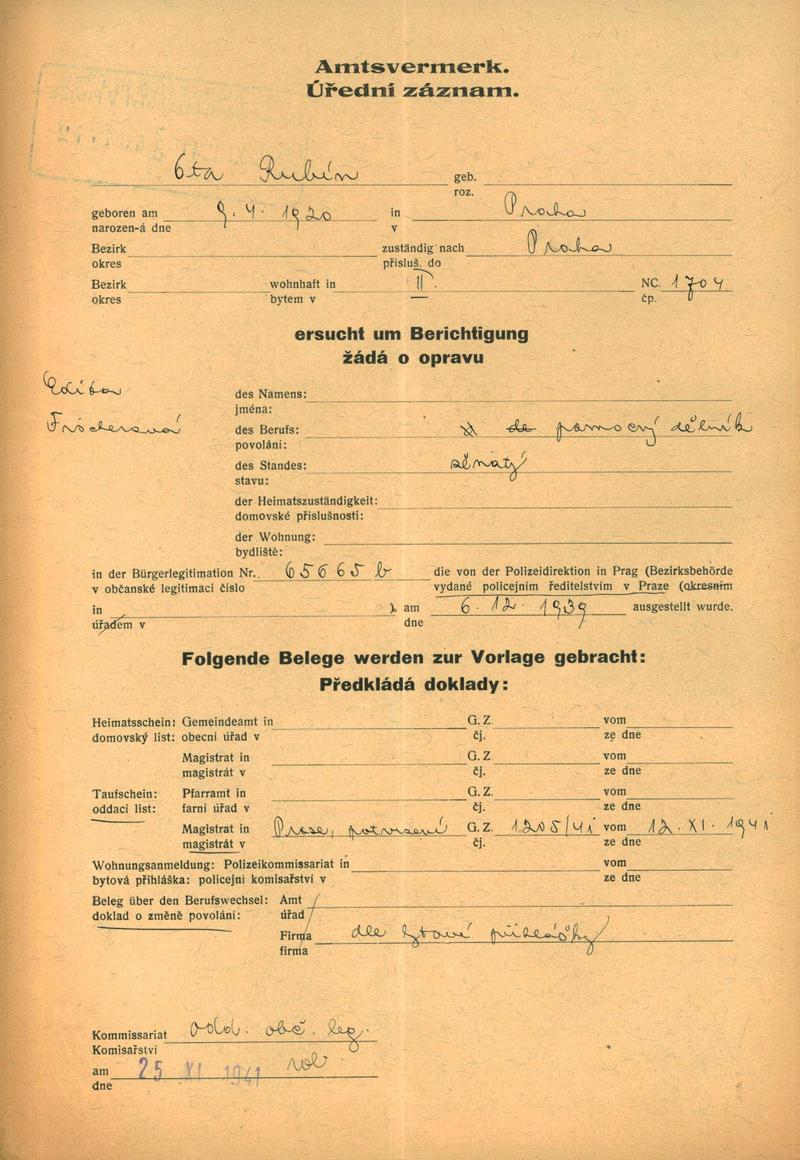 Amtsvermerk.
Úřední záznam.
Ota Rubín geb.
roz.
geboren am 9. 4. 1920 in Praha
narozen-á dne v
Bezirk zuständig nach Praha
okres přísluš. do
Bezirk wohnhaft in II. NC. 1704
okres bytem v čp.
ersucht um Berichtigung
žádá o opravu
des Namens:
jména:
des Berufs: pomocný dělník
povolání:
des Standes: ženatý
stavu:
der Heimatszuständigkeit:
domovské příslušnosti:
der Wohnung:
bydliště:
in der Bürgerlegitimation Nr. 65665 b die von der Polizeidirektion in Prag (Bezirksbehörde
v občanské legitimaci číslo vydané policejním ředitelstvím v Praze (okresním
in ). am 6. 12. 1939 ausgestellt wurde.
úřadem v dne
Folgende Belege werden zur Vorlage gebracht:
Předkládá doklady:
Heimatsschein: Gemeindeamt in G. Z. vom
domovský list: obecní úřad v čj. ze dne
Magistrat in G. Z. vom
magistrát v čj. ze dne
Taufschein: Pfarramt in G. Z. vom
oddací list: farní úřad v čj. ze dne
Magistrat in Praze, potvrzení G. Z. 1205/41 vom 12. XI. 1941
magistrát v čj. ze dne
Wohnungsanmeldung: Polizeikommissariat in vom
bytová přihláška: policejní komisařství v ze dne
Beleg über den Berufswechsel: Amt
doklad o změně povolání: úřad
Firma dle bytové přihlášky
firma
Kommissariat odd. obč. leg.
Komisařství
am 25 XI 1941
dne